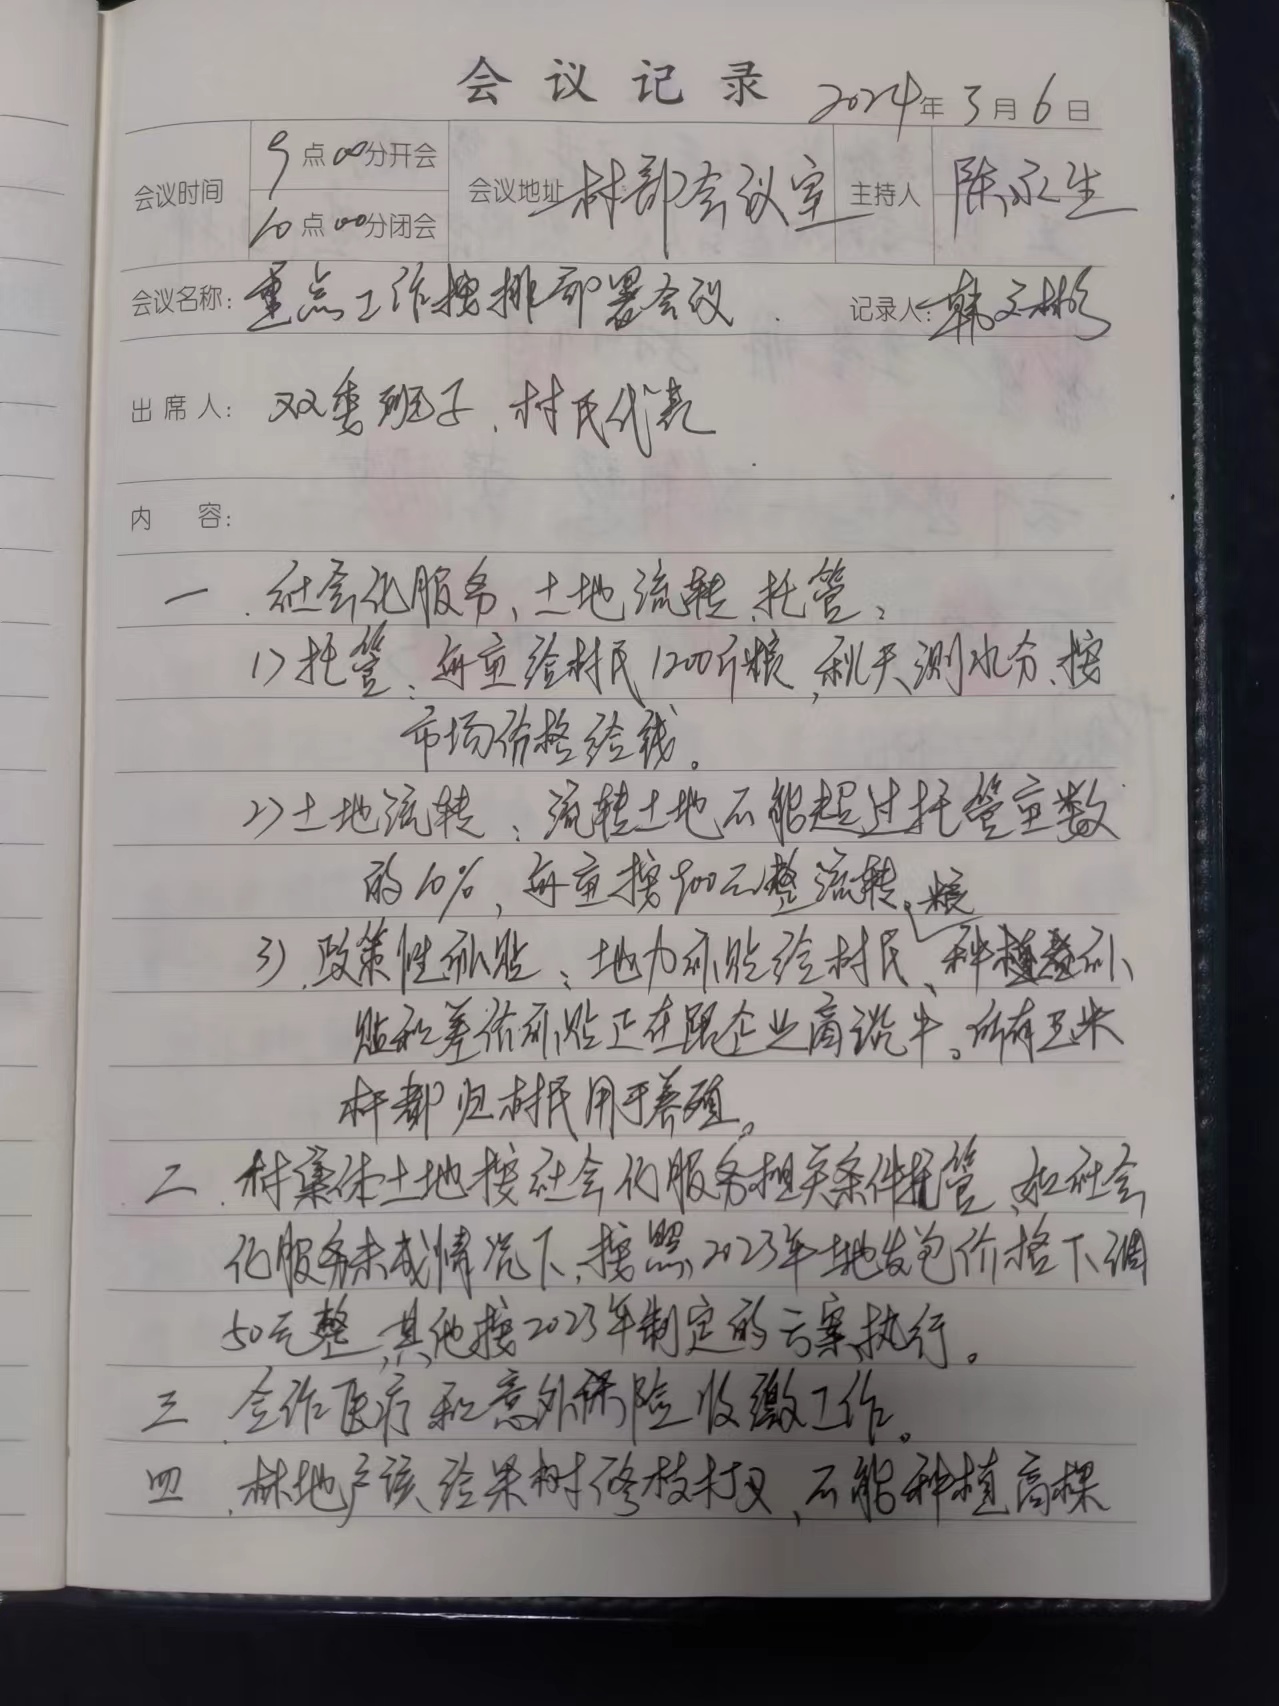 会议记录
2024年3月6日
会议时间 9点00分开会 会议地址 村部会议室 主持人 陈永生
10点00分闭会
会议名称：重点工作摸排部署会议 记录人：韩文彬
出席人：双委班子、村民代表
内容：
一、社会化服务、土地流转、托管：
1）托管：每亩给村民1200斤粮，秋天测水分、按
市场价格给钱。
2）土地流转：流转土地不能超过托管亩数
的10%，每亩按900元整流转。
3）政策性补贴：地力补贴给村民、种粮补
贴和差价补贴正在跟企业商谈中。所有玉米
杆都归村民用于养殖。
二、村集体土地按社会化服务相关条件托管，如社会
化服务未成情况下，按照2023年土地发包价格下调
50元整，其他按2023年制定的方案执行。
三、合作医疗和意外保险收缴工作。
四、林地户该给果树修枝打叉，不能种植高棵